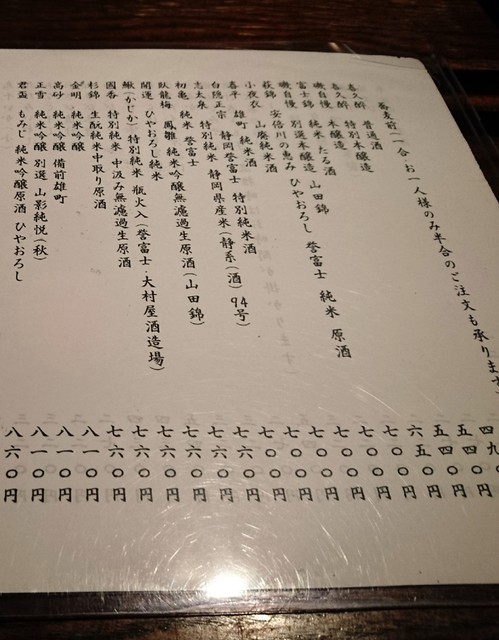 蕎麦前(一合・お一人様のみ半合のご注文も承ります
喜久酔 普通酒 四九〇円
喜久酔 特別本醸造 五四〇円
磯自慢 本醸造 五四〇円
富士錦 純米 たる酒 六五〇円
磯自慢 別選本醸造 山田錦 七〇〇円
萩錦 安倍川の恵み ひやおろし 誉富士 純米 原酒 七〇〇円
小夜衣 山廃純米酒 七〇〇円
喜平 雄町 純米酒 七〇〇円
白隠正宗 静岡誉富士 特別純米酒 七〇〇円
志太泉 特別純米 静岡県産米(静系(酒)94号) 七〇〇円
初亀 純米 誉富士 七六〇円
臥龍梅 鳳雛 純米吟醸無濾過生原酒(山田錦) 七六〇円
開運 ひやおろし純米 七六〇円
鰍(かじか) 特別純米 瓶火入(誉富士・大村屋酒造場) 七六〇円
國香 特別純米 中汲み無濾過生原酒 七六〇円
杉錦 生酛純米中取り原酒 七六〇円
金明 純米吟醸 八一〇円
高砂 純米吟醸 備前雄町 八一〇円
正雪 純米吟醸 別選 山影純悦(秋) 八一〇円
君盃 もみじ 純米吟醸原酒 ひやおろし 八六〇円